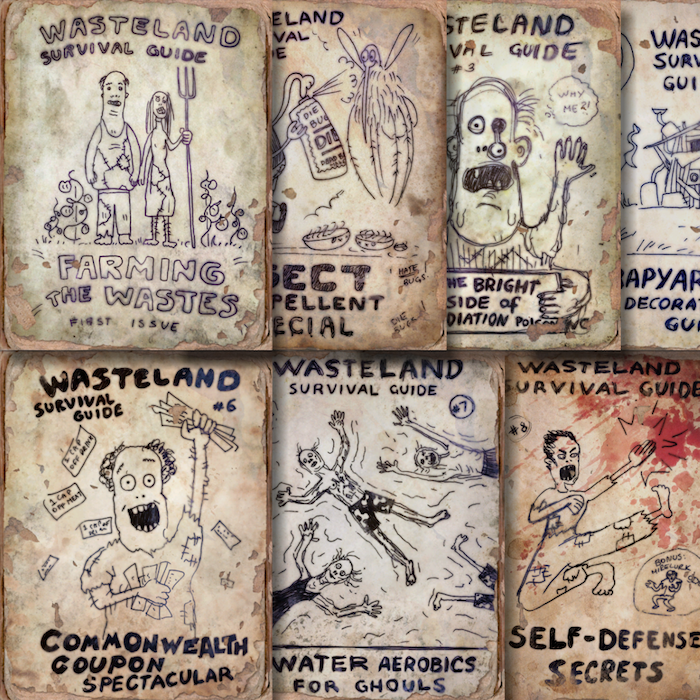 WASTELAND
SURVIVAL GUIDE
FARMING
THE WASTES
FIRST ISSUE
ELAND
VAL
DIE
BUG
DIE
SECT
PELLENT
ECIAL
I HATE
BUGS!
STELAND
VAL GUIDE
#3
WHY
ME?!
HE BRIGHT
SIDE of
DIATION POISONINC
WAS
SURV
GUI
APYAR
DECORAT
GUI
WASTELAND
SURVIVAL
GUIDE
#6
1 CAP
OFF DRINK
1 CAP
OFF MEAT
1 CAP
COMMONWEALTH
COUPON
SPECTACULAR
WASTELAND
SURVIVAL GUIDE
#7
WATER AEROBICS
FOR GHOULS
WASTELAND
SURVIVAL GUIDE
#8
BONUS:
MIRELURK
SELF-DEFENSE
SECRETS